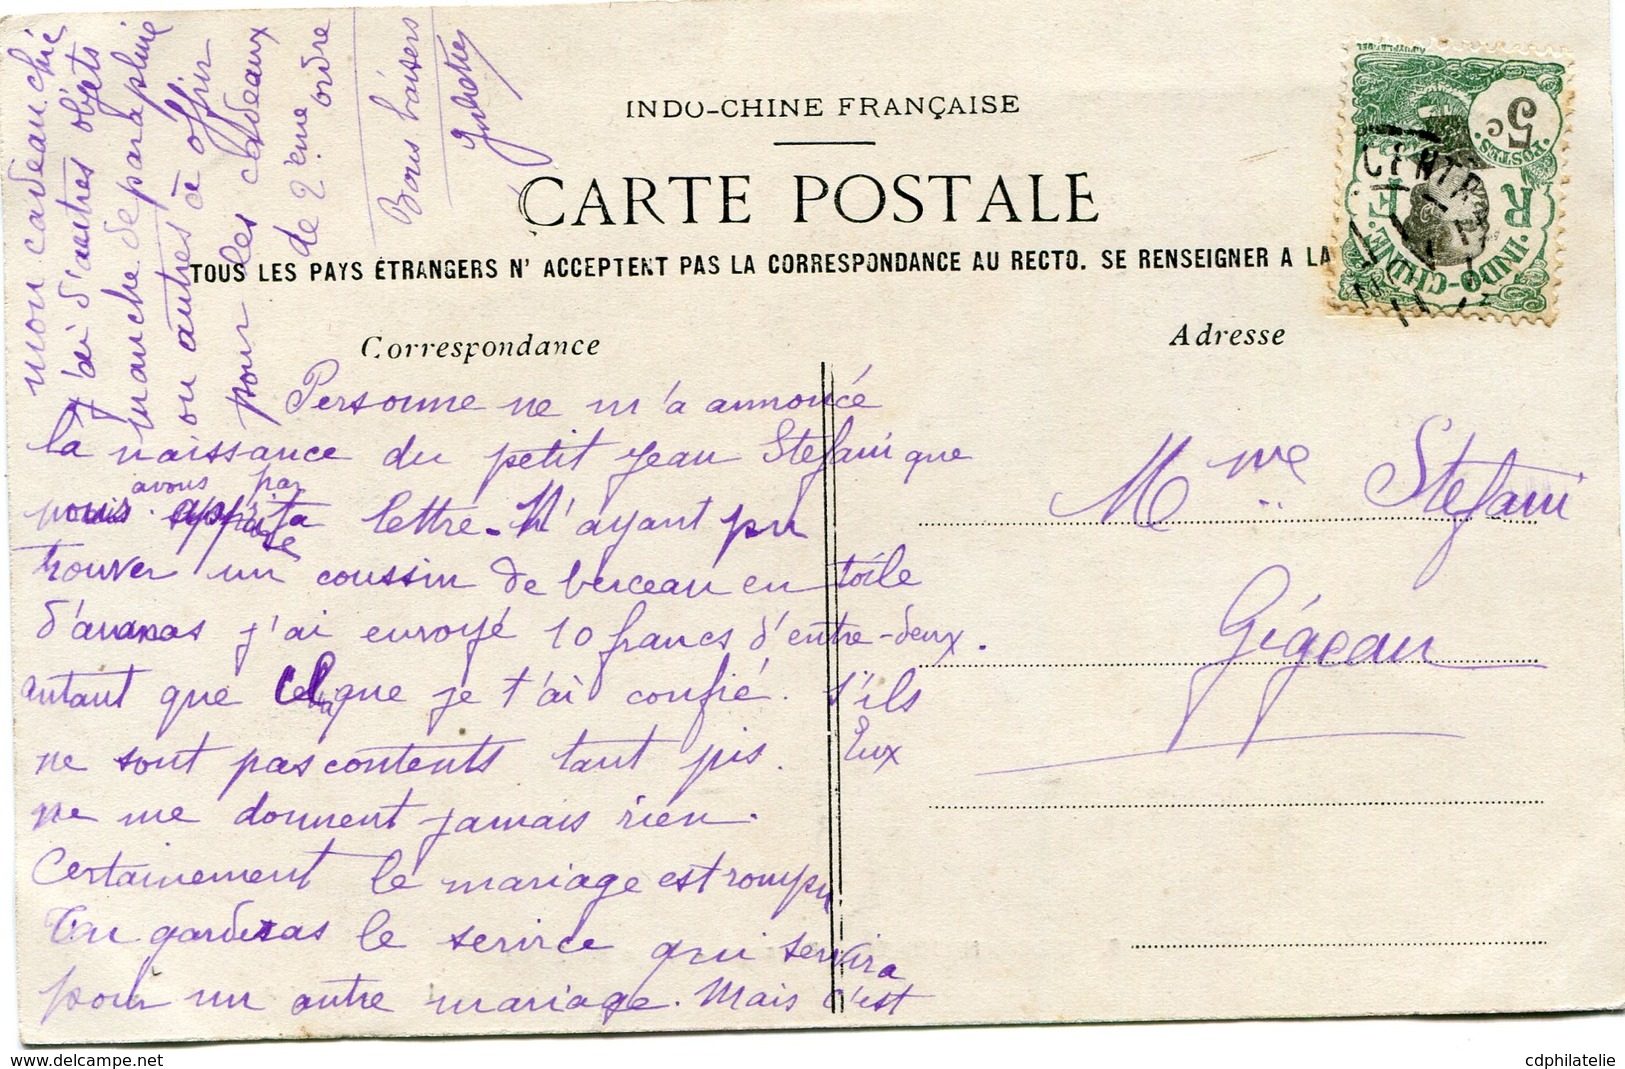 INDO-CHINE FRANÇAISE
CARTE POSTALE
TOUS LES PAYS ÉTRANGERS N' ACCEPTENT PAS LA CORRESPONDANCE AU RECTO. SE RENSEIGNER A LA
Correspondance
Adresse
Personne ne m'a annoncé
la naissance du petit Jean Stefani que
avons par
nous appris ta lettre - N'ayant pu
trouver un coussin de berceau en toile
d'ananas j'ai envoyé 10 francs d'entre-deux.
autant que celui que je t'ai confié. S'ils
ne sont pas contents tant pis. Eux
ne me donnent jamais rien.
Certainement le mariage est rompu
Tu garderas le service qui servira
pour un autre mariage. Mais c'est
mon cadeau chic
J'ai d'autres objets
manche de parapluie
ou autres à offrir
pour les cadeaux
de 2ème ordre
Bons baisers
Mme Stefani
Gigean
5c
POSTES.
R F
INDO-CHINE
CENTR
cdphilatelie